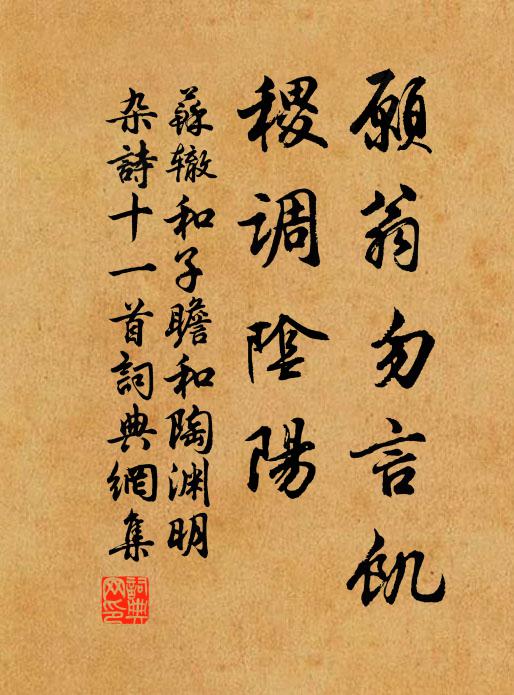 願翁勿言飢
稷調陰陽
蘇辙和子瞻和陶渊明
杂詩十一首詞典網集
詞典
网印